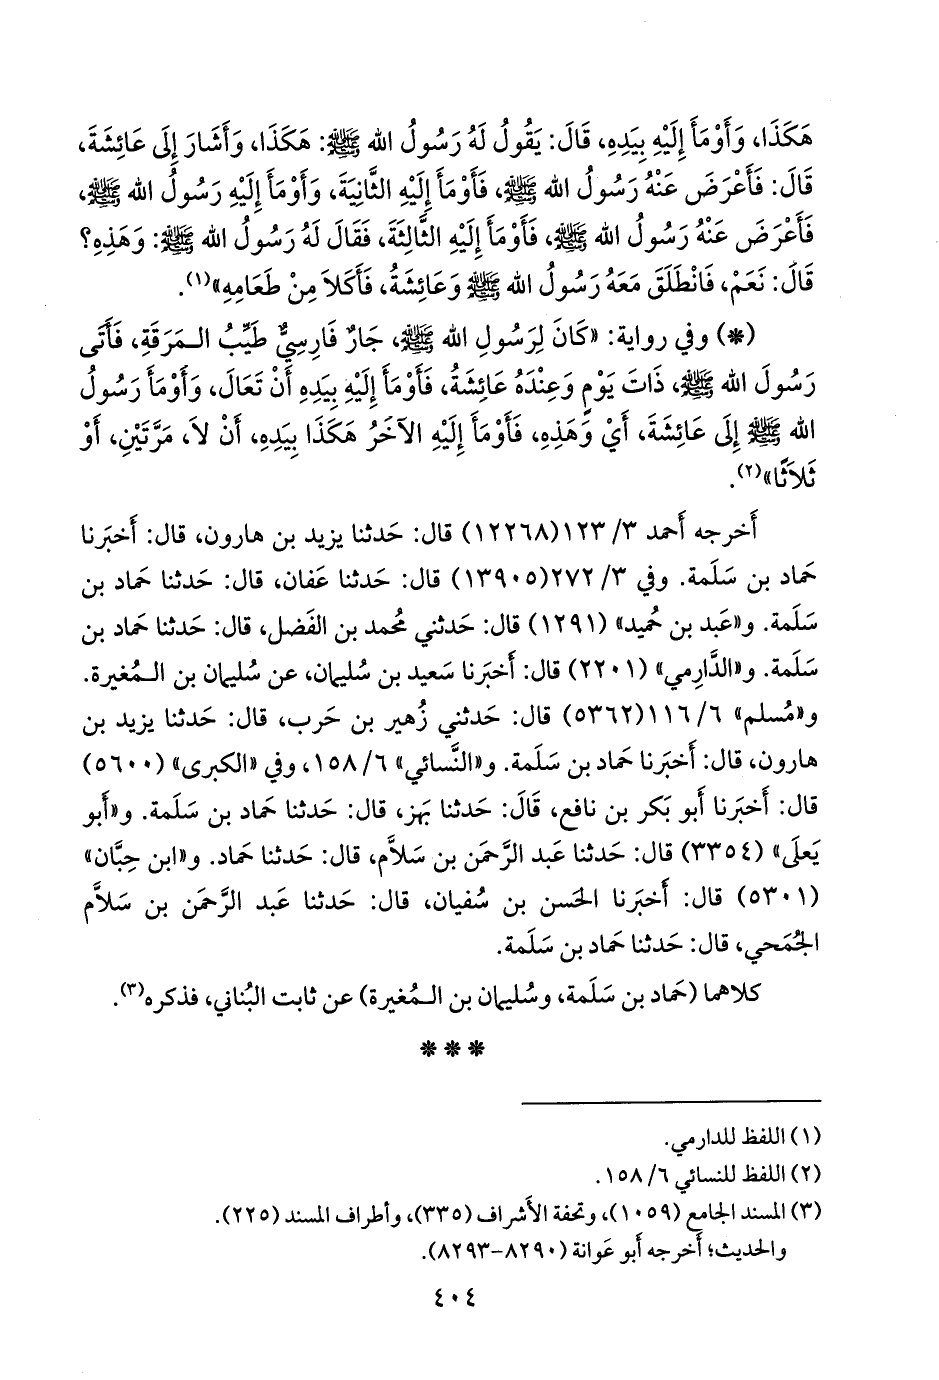 هَكَذَا، وَأَوْمَأَ إِلَيْهِ بِيَدِهِ، قَالَ: يَقُولُ لَهُ رَسُولُ الله ﷺ: هَكَذَا، وَأَشَارَ إِلَى عَائِشَةَ،
قَالَ: فَأَعْرَضَ عَنْهُ رَسُولُ الله ﷺ، فَأَوْمَأَ إِلَيْهِ الثَّانِيَةَ، وَأَوْمَأَ إِلَيْهِ رَسُولُ الله ﷺ،
فَأَعْرَضَ عَنْهُ رَسُولُ الله ﷺ، فَأَوْمَأَ إِلَيْهِ الثَّالِثَةَ، فَقَالَ لَهُ رَسُولُ الله ﷺ: وَهَذِهِ؟
قَالَ: نَعَمْ، فَانْطَلَقَ مَعَهُ رَسُولُ الله ﷺ وَعَائِشَةُ، فَأَكَلاَ مِنْ طَعَامِهِ»(١).
(*) وفي رواية: «كَانَ لِرَسُولِ الله ﷺ، جَارٌ فَارِسِيٌّ طَيِّبُ الـمَرَقَةِ، فَأَتَى
رَسُولَ الله ﷺ، ذَاتَ يَوْمٍ وَعِنْدَهُ عَائِشَةُ، فَأَوْمَأَ إِلَيْهِ بِيَدِهِ أَنْ تَعَالَ، وَأَوْمَأَ رَسُولُ
الله ﷺ إِلَى عَائِشَةَ، أَيْ وَهَذِهِ، فَأَوْمَأَ إِلَيْهِ الآخَرُ هَكَذَا بِيَدِهِ، أَنْ لاَ، مَرَّتَيْنِ، أَوْ
ثَلاَثًا»(٢).
أَخرجه أَحمد ٣/ ١٢٣(١٢٢٦٨) قال: حَدثنا يزيد بن هارون، قال: أَخبَرنا
حَماد بن سَلَمة. وفي ٣/ ٢٧٢(١٣٩٠٥) قال: حَدثنا عَفان، قال: حَدثنا حَماد بن
سَلَمة. و«عَبد بن حُميد» (١٢٩١) قال: حَدثني مُحمد بن الفَضل، قال: حَدثنا حَماد بن
سَلَمة. و«الدَّارِمي» (٢٢٠١) قال: أَخبَرنا سَعيد بن سُليمان، عن سُليمان بن الـمُغيرة.
و«مُسلم» ٦/ ١١٦(٥٣٦٢) قال: حَدثني زُهير بن حَرب، قال: حَدثنا يزيد بن
هارون، قال: أَخبَرنا حَماد بن سَلَمة. و«النَّسائي» ٦/ ١٥٨، وفي «الكبرى» (٥٦٠٠)
قال: أَخبَرنا أَبو بَكر بن نافع، قَالَ: حَدثنا بَهز، قال: حَدثنا حَماد بن سَلَمة. و«أَبو
يَعلَى» (٣٣٥٤) قال: حَدثنا عَبد الرَّحمَن بن سَلاَّم، قال: حَدثنا حَماد. و«ابن حِبَّان»
(٥٣٠١) قال: أَخبَرنا الحَسن بن سُفيان، قال: حَدثنا عَبد الرَّحمَن بن سَلاَّم
الجُمَحي، قال: حَدثنا حَماد بن سَلَمة.
كلاهما (حَماد بن سَلَمة، وسُليمان بن الـمُغيرة) عن ثابت البُناني، فذكره(٣).
***
(١) اللفظ للدارمي.
(٢) اللفظ للنسائي ٦/ ١٥٨.
(٣) المسند الجامع (١٠٥٩)، وتحفة الأَشراف (٣٣٥)، وأَطراف المسند (٢٢٥).
والحديث؛ أَخرجه أَبو عَوانة (٨٢٩٠-٨٢٩٣).
٤٠٤